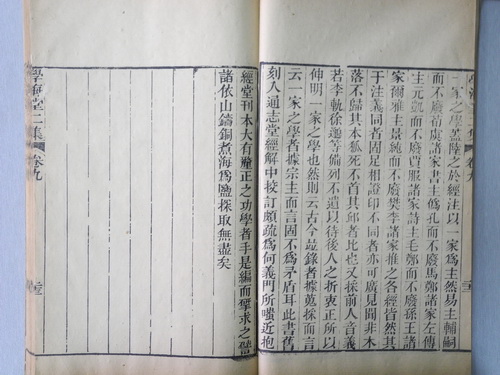 一家之學蓋陸之於經注以一家爲主然易主輔嗣
而不廢荀虞諸家書主僞孔而不廢馬鄭諸家左傳
主元凱而不廢賈服諸家詩主毛鄭而不廢孫王諸
家爾雅主景純而不廢樊李諸家推之各經皆然其
于注義同者固足相證印不同者亦可廣見聞非木
落不歸其本狐死不首其邱者比也又採前人音義
若李軌徐邈等備列不遺以待後人之折衷正所以
伸明一家之學也然則云古今並錄者據蒐採而言
云一家之學者據宗主而言固不爲矛盾耳此書舊
刻入通志堂經解中校訂頗疏爲何義門所嗤近抱
經堂刊本大有釐正之功學者手是編而孳求之譬
諸依山鑄銅煮海爲鹽採取無盡矣
學海堂二集 卷九